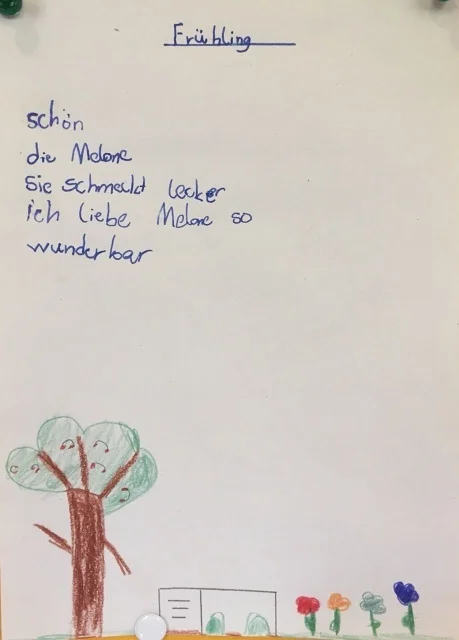 Frühling
schön
die Melone
Sie schmeckt lecker
ich liebe Melone so
wunderbar